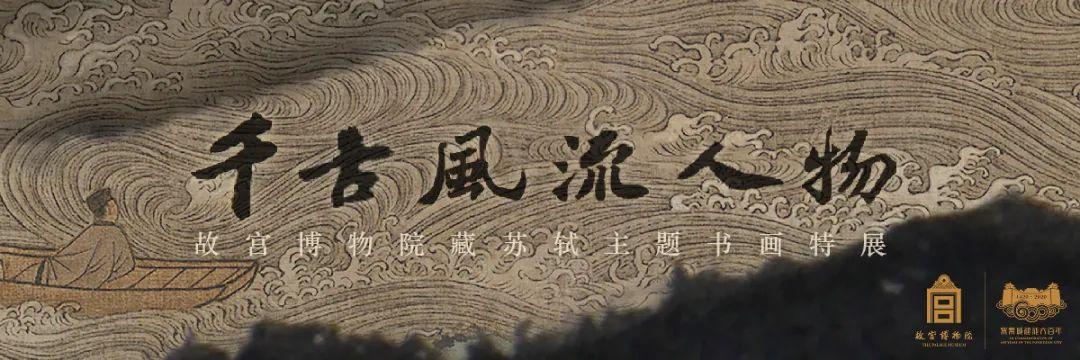 千古風流人物
故宫博物院藏苏轼主题书画特展
故宫博物院
THE PALACE MUSEUM
1420-2020
紫禁城建成六百年